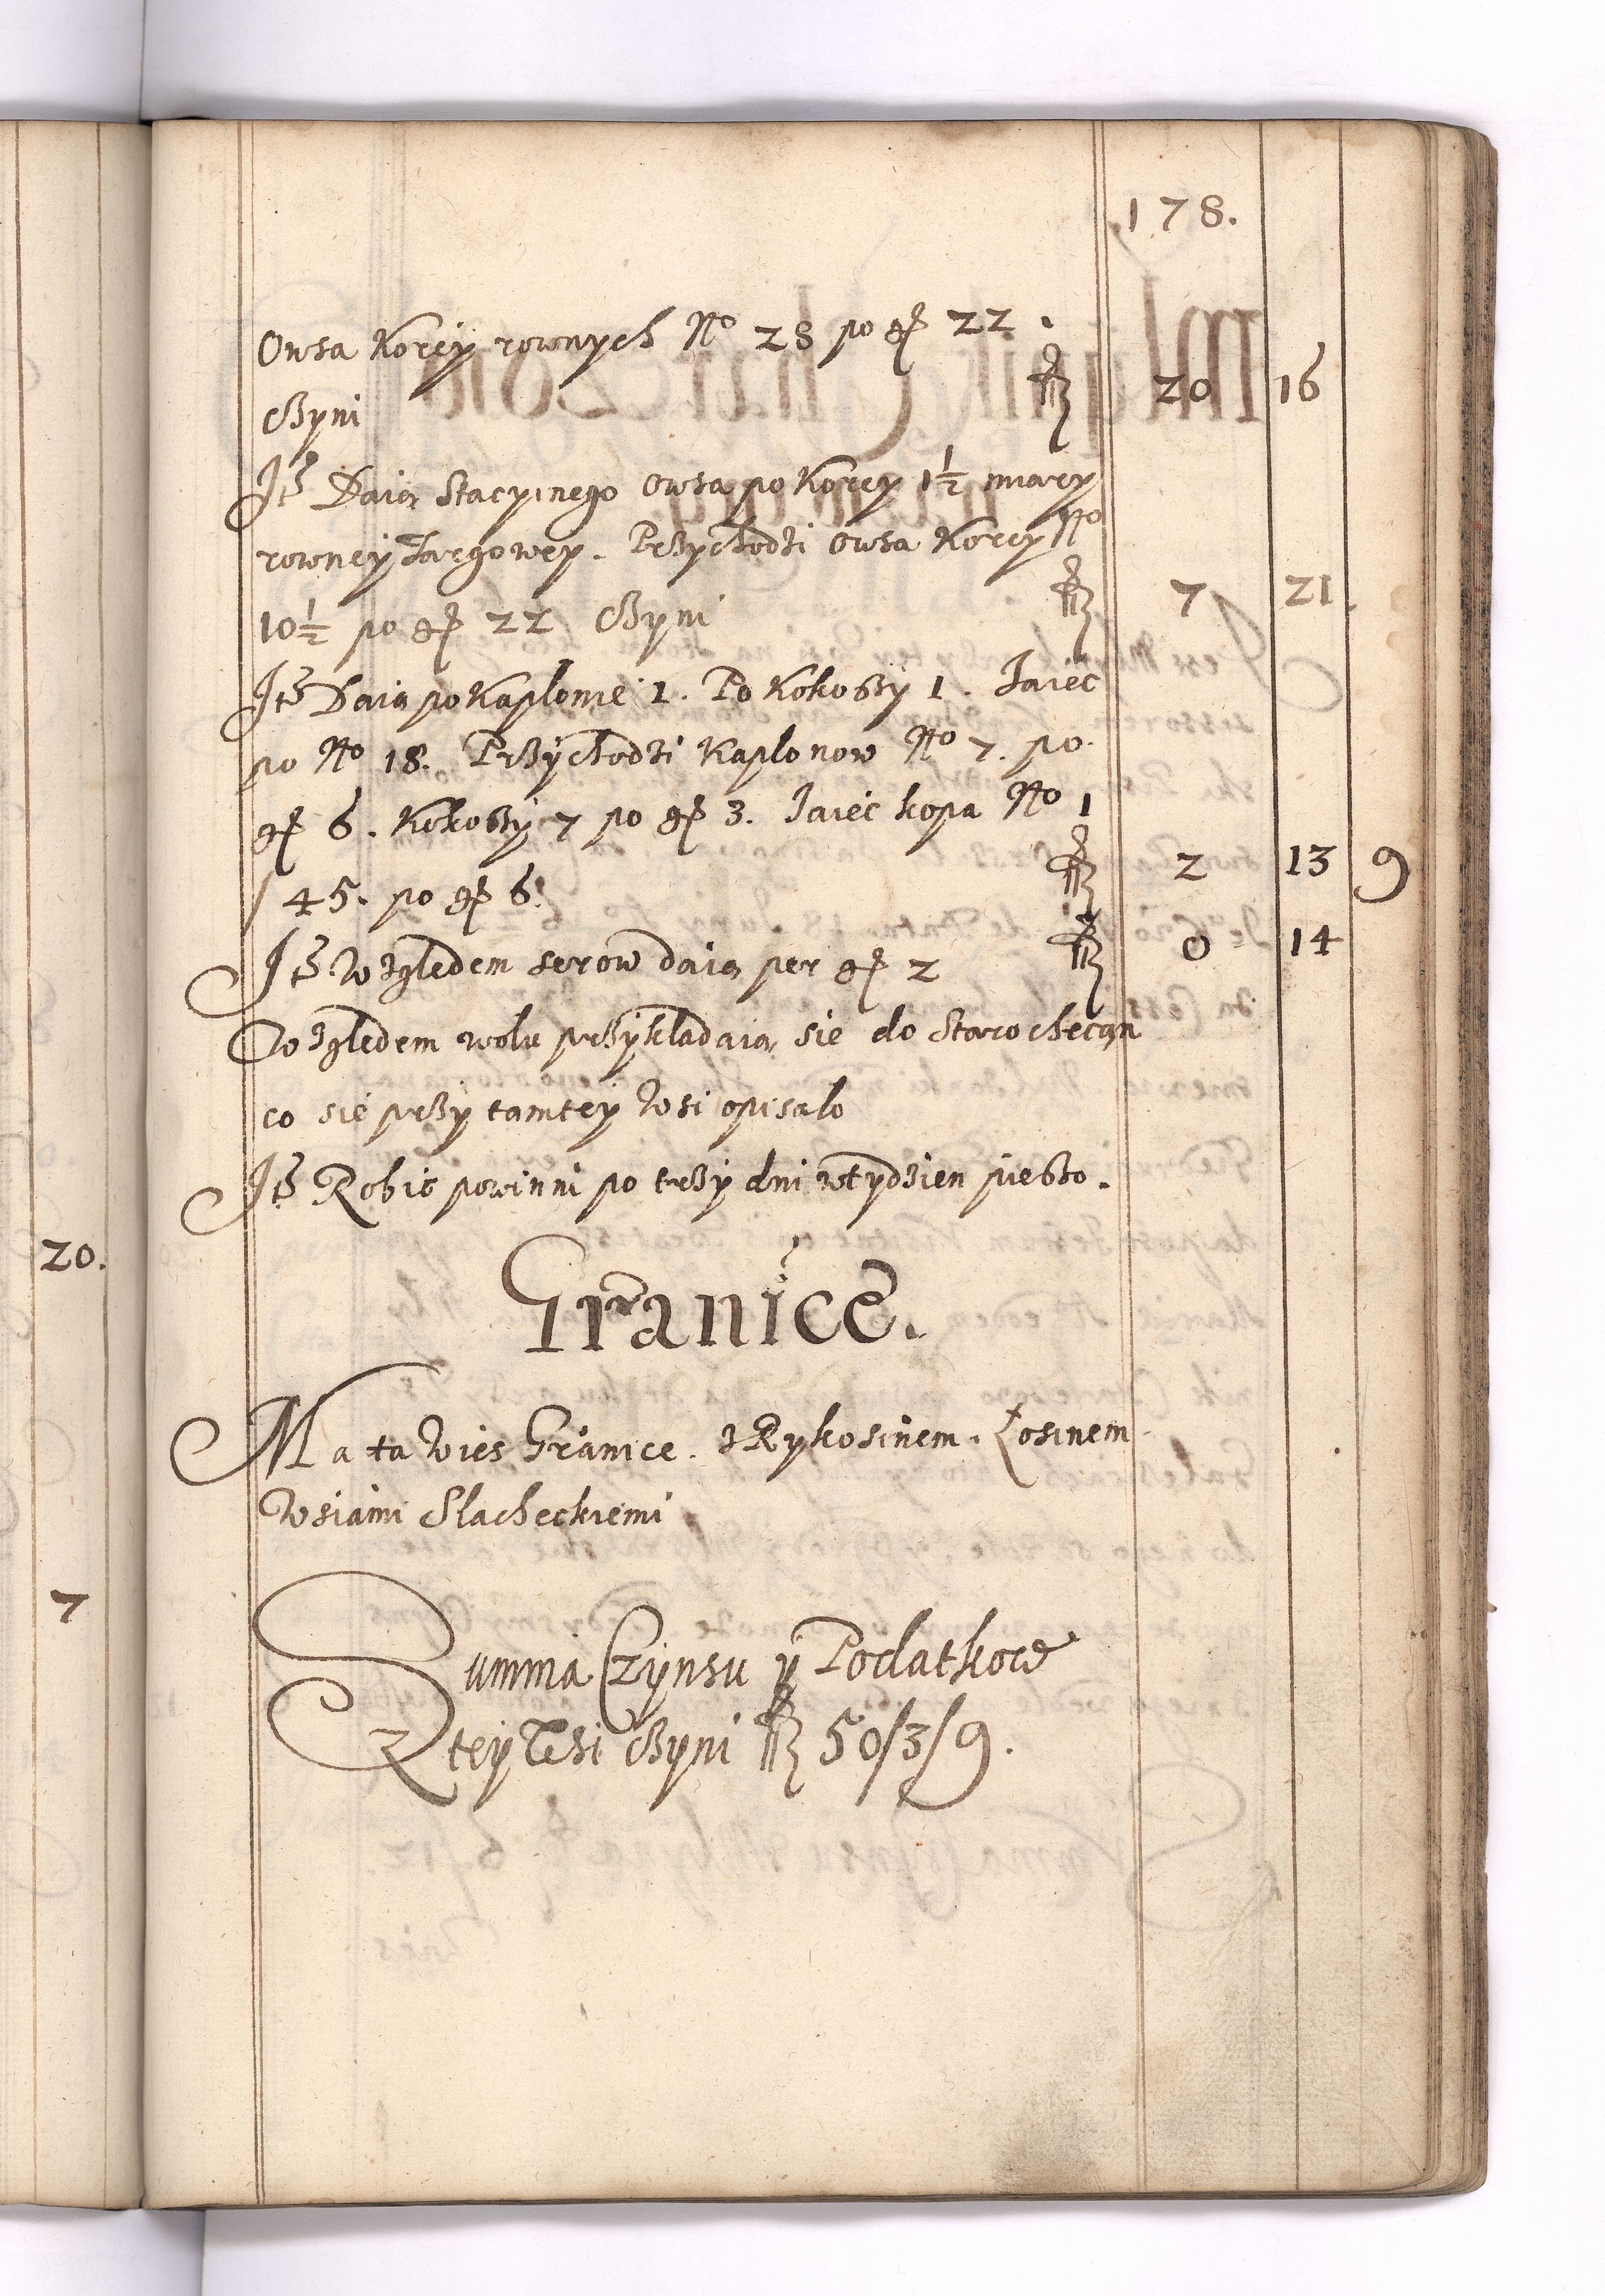 178.
Owsa Korcy rownych No 28 po gr 22.
czyni fl 20 16
Itẽ Daią Stacyinego Owsa po Korcy 1½ miary
rowney Targowey. Przychodzi Owsa Korcy No
10½ po gr 22 czyni fl 7 21
Itẽ Daią po Kaplonie 1. Po Kokoszy 1. Iaiec
po No 18. Przychodzi Kaplonow No 7. po
gr 6. Kokoszy 7 po gr 3. Iaiec kopa No 1
/ 45. po gr 6. fl 2 13 9
Itẽ Wzgledem serow daią per gr 2 fl 0 14
Wzgledem wolu przykladaią sie do Starochecan
co sie przy tamtey Wsi opisalo
Itẽ Robic powinni po trzy dni w tydzien pieszo.
Granice.
Ma ta Wies Granice. z Rykosinem. Łosinem
Wsiami Slacheckiemi
Summa Czynsu y Podatkow
Z tey Wsi czyni fl 50/3/9.
20.
7